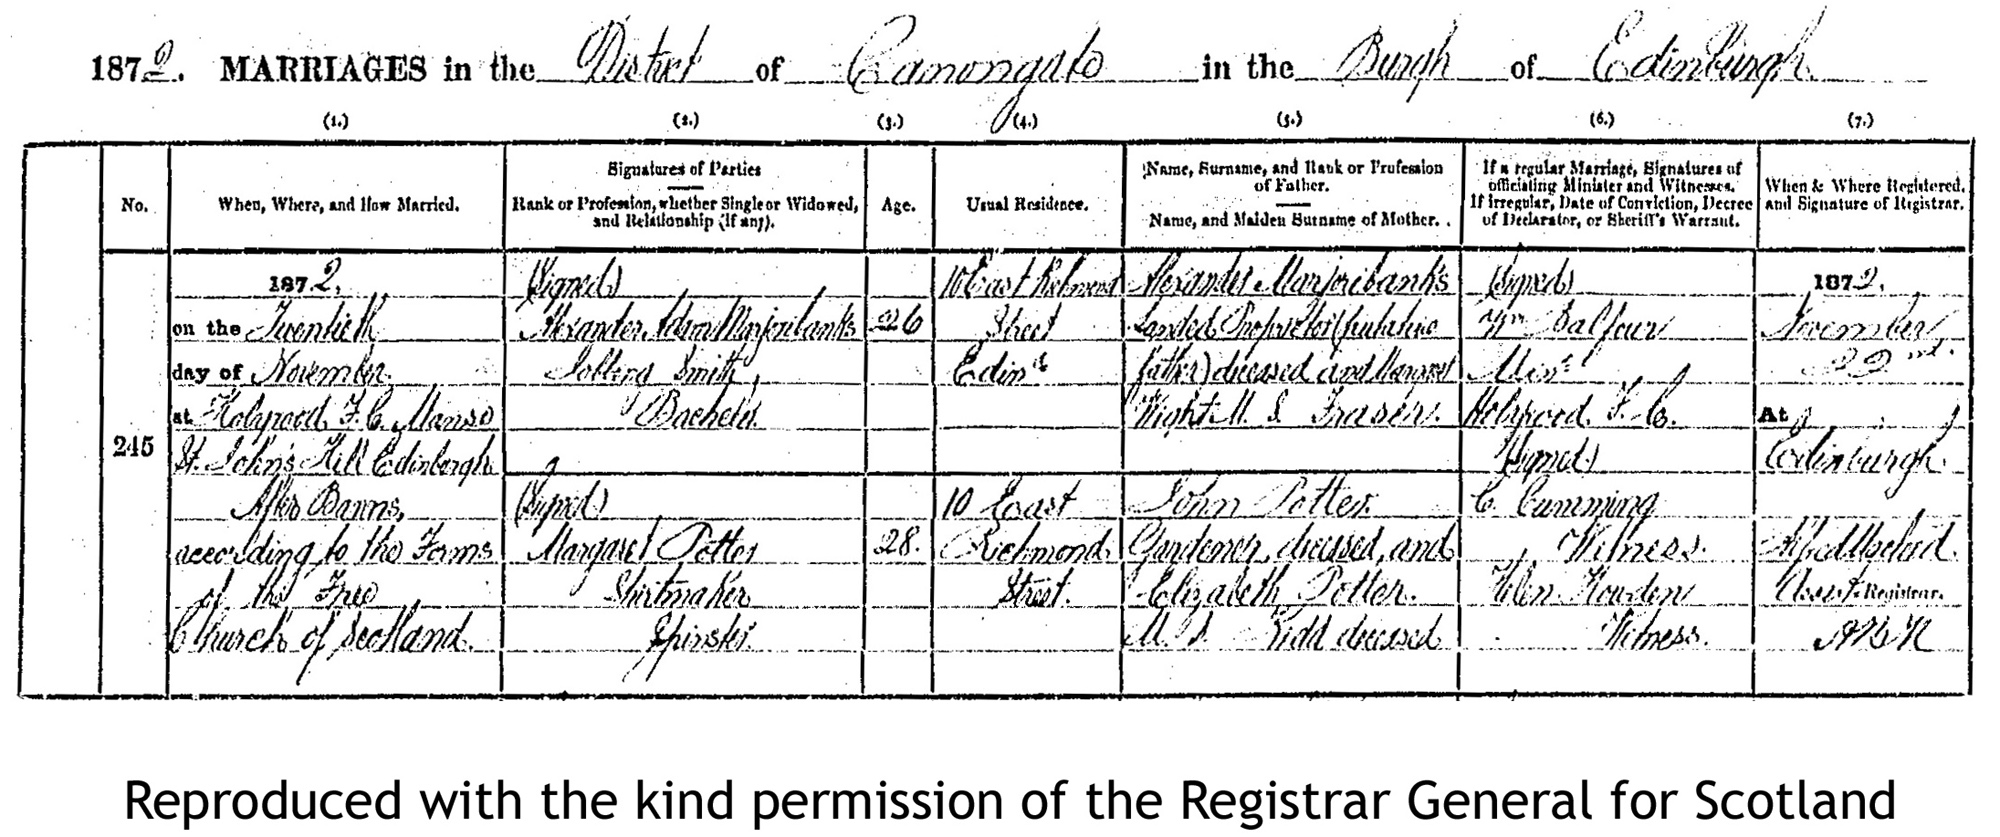 1872. MARRIAGES in the District of Canongate in the Burgh of Edinburgh
(1.) (2.) (3.) (4.) (5.) (6.) (7.)
No.
When, Where, and How Married.
Signatures of Parties
Rank or Profession, whether Single or Widowed,
and Relationship (if any).
Age.
Usual Residence.
Name, Surname, and Rank or Profession
of Father.
Name, and Maiden Surname of Mother.
If a regular Marriage, Signatures of
officiating Minister and Witnesses.
If irregular, Date of Conviction, Decree
of Declarator, or Sheriff's Warrant.
When & Where Registered,
and Signature of Registrar.
245
1872,
on the Twentieth
day of November
at Holyrood F. C. Manse
St. John's Hill Edinburgh
After Banns,
according to the Forms
of the Free
Church of Scotland.
(Signed)
Alexander Adam Marjoribanks
Smith
Bachelor.
(Signed)
Margaret Potter
Shirtmaker
Spinster.
26
28.
10 East Richmond
Street
Edinr
10 East
Richmond
Street.
Alexander Marjoribanks
Landed Proprietor (putative
father) deceased and Margaret
Wight M. S. Fraser.
John Potter
Gardener, deceased, and
Elizabeth Potter.
M. S. Kidd deceased
(Signed)
Wm Balfour
Minr
Holyrood F. C.
(Signed)
C. Cumming
Witness.
Helen Howden
Witness.
1872,
November
22nd.
At
Edinburgh
Asst. Registrar.
Reproduced with the kind permission of the Registrar General for Scotland